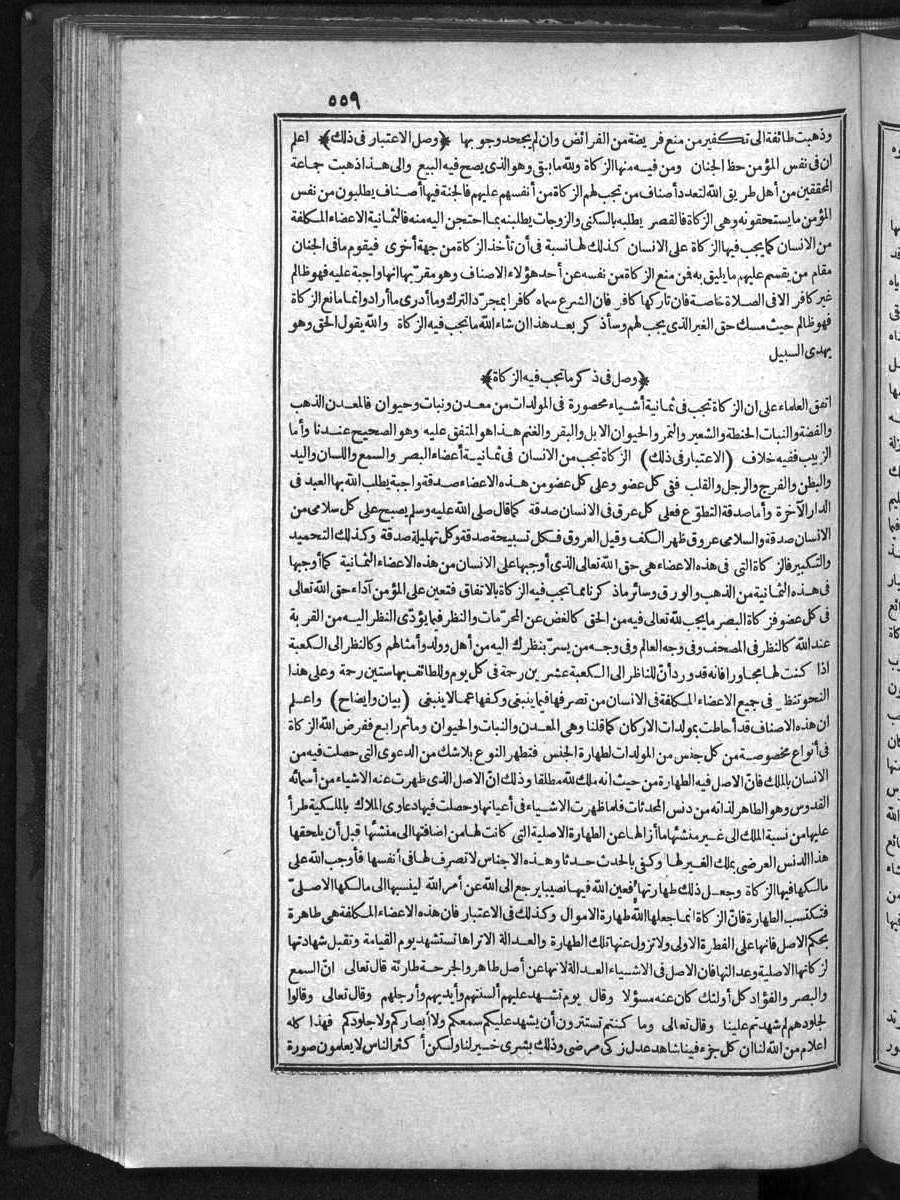 ٥٥٩
وذهبت طائفة الى تكفير من منع فريضة من الفرائض وان لم يجحد وجوبها ﴿وصل الاعتبار فى ذلك﴾ اعلم
ان فى نفس المؤمن حظ الجنان ومن فيه منها الزكاة ولله ما بقى وهو الذى يصح فيه البيع والى هذا ذهبت جماعة
المحققين من أهل طريق الله لتعدد أصناف من تجب لهم الزكاة من أنفسهم عليهم فالجنة فيها أصناف يطلبون من نفس
المؤمن ما يستحقونه وهى الزكاة فالقصر يطلبه بالسكنى والزوجات يطلبنه بما احتجن اليه منه فالثمانية الاعضاء المكلفة
من الانسان كما يجب فيها الزكاة على الانسان كذلك لها نسبة فى أن تأخذ الزكاة من جهة أخرى فيقوم مافى الجنان
مقام من يقسم عليهم ما يليق به فن منع الزكاة من نفسه عن أحد هؤلاء الاصناف وهو مقر بها انها واجبة عليه فهو ظالم
غير كافر الا فى الصلاة خاصة فان تاركها كافر فان الشرع سماه كافرا بمجرّد الترك وما أدرى ما أراد وانما مانع الزكاة
فهو ظالم حيث مسك حق الغير الذى يجب لهم وسأذكر بعد هذا ان شاء الله ما تجب فيه الزكاة والله يقول الحق وهو
يهدى السبيل
﴿وصل فى ذكر ما تجب فيه الزكاة﴾
اتفق العلماء على ان الزكاة تجب فى ثمانية أشياء محصورة فى المولدات من معدن ونبات وحيوان فالمعدن الذهب
والفضة والنبات الحنطة والشعير والتمر والحيوان الابل والبقر والغنم هذا هو المتفق عليه وهو الصحيح عندنا وأما
الزبيب ففيه خلاف (الاعتبار فى ذلك) الزكاة تجب من الانسان فى ثمانية أعضاء البصر والسمع واللسان واليد
والبطن والفرج والرجل والقلب فتى كل عضو وعلى كل عضو من هذه الاعضاء صدقة واجبة يطلب الله بها العبد فى
الدار الآخرة وأما صدقة التطوّع فعلى كل عرق فى الانسان صدقة كما قال صلى الله عليه وسلم يصبح على كل سلامى من
الانسان صدقة والسلامى عروق ظهر الكف وقيل العروق فكل تسبيحة صدقة وكل تهليلة صدقة وكذلك التحميد
والتكبير فالزكاة التى فى هذه الاعضاء هى حق الله تعالى الذى أوجبها على الانسان من هذه الاعضاء الثمانية كما أوجبها
فى هذه الثمانية من الذهب والورق وسائر ما ذكرنا مما تجب فيه الزكاة بالاتفاق فتعين على المؤمن آداء حق الله تعالى
فى كل عضو فزكاة البصر ما يجب لله تعالى فيه من الحق كالغض عن المحرّمات والنظر فيما يؤدّى النظر اليه من القربة
عند الله كالنظر فى المصحف وفى وجه العالم وفى وجه من يسرّ بنظرك اليه من أهل وولد وأمثالهم وكالنظر الى الكعبة
اذا كنت لها مجاورا فانه قد ورد أنّ للناظر الى الكعبة عشرين رحة فى كل يوم وللطائف بها ستين رحة وعلى هذا
النحو تنظر فى جميع الاعضاء المكلفة فى الانسان من تصرفها فيما ينبغى وكفها عما لا ينبغى (بيان وايضاح) واعلم
ان هذه الاصناف قد أحاطت بمولدات الاركان كما قلنا وهى المعدن والنبات والحيوان وما ثم رابع ففرض الله الزكاة
فى أنواع مخصوصة من كل جنس من المولدات لطهارة الجنس فتطهر النوع بلا شك من الدعوى التى حصلت فيه من
الانسان بالملك فانّ الاصل فيه الطهارة من حيث انه ملك لله مطلقا وذلك انّ الاصل الذى ظهرت عنه الاشياء من أسمائه
القدوس وهو الطاهر لذاته من دنس المحدثات فلما ظهرت الاشياء فى أعيانها وحصلت فيها دعاوى الملاك بالملكية طرأ
عليها من نسبة الملك الى غير منشئها ما أزالها عن الطهارة الاصلية التى كانت لها من اضافتها الى منشئها قبل أن يلحقها
هذا الدنس العرضى بملك الغير لها وكفى بالحدث حدثا وهذه الاجناس لا تصرف لها فى أنفسها فأوجب الله على
مالكها فيها الزكاة وجعل ذلك طهارتها فعين الله فيها نصيبا يرجع الى الله عن أمر الله لينسبها الى مالكها الاصلىّ
فتكتسب الطهارة فانّ الزكاة انما جعلها الله طهارة الاموال وكذلك فى الاعتبار فان هذه الاعضاء المكلفة هى طاهرة
بحكم الاصل فانها على الفطرة الاولى ولا تزول عنها تلك الطهارة والعدالة الا تراها تستشهد يوم القيامة وتقبل شهادتها
لزكاتها الاصلية وعدالتها فان الاصل فى الاشياء العدالة لانها عن أصل طاهر والجرحة طارئة قال تعالى انّ السمع
والبصر والفؤاد كل أولئك كان عنه مسؤلا وقال يوم تشهد عليهم ألسنتهم وأيديهم وأرجلهم وقال تعالى وقالوا
لجلودهم لم شهدتم علينا وقال تعالى وما كنتم تستترون أن يشهد عليكم سمعكم ولا أبصاركم ولا جلودكم فهذا كله
اعلام من الله لنا ان كل جزء فينا شاهد عدل زكى مرضى وذلك بشرى خير لنا ولكن أكثر الناس لا يعلمون صورة